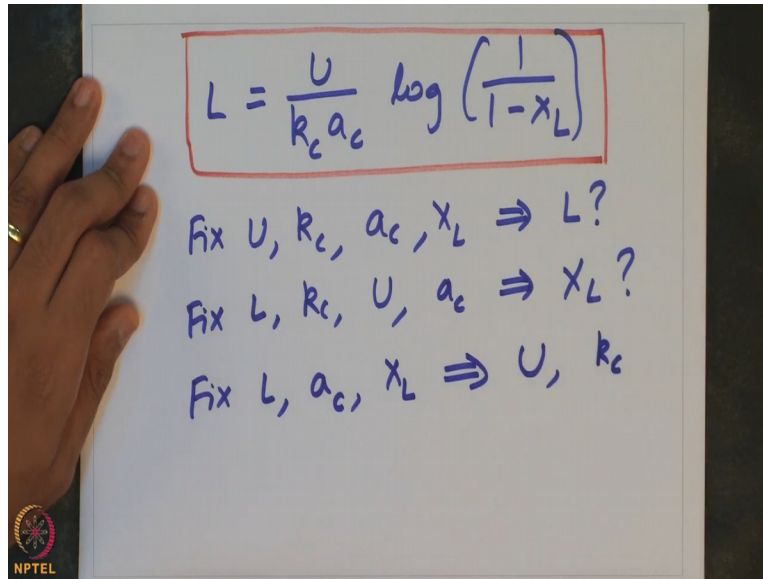 L = U / (k_c a_c) log (1 / (1 - X_L))
Fix U, k_c, a_c, X_L ⇒ L?
Fix L, k_c, U, a_c ⇒ X_L?
Fix L, a_c, X_L ⇒ U, k_c
NPTEL